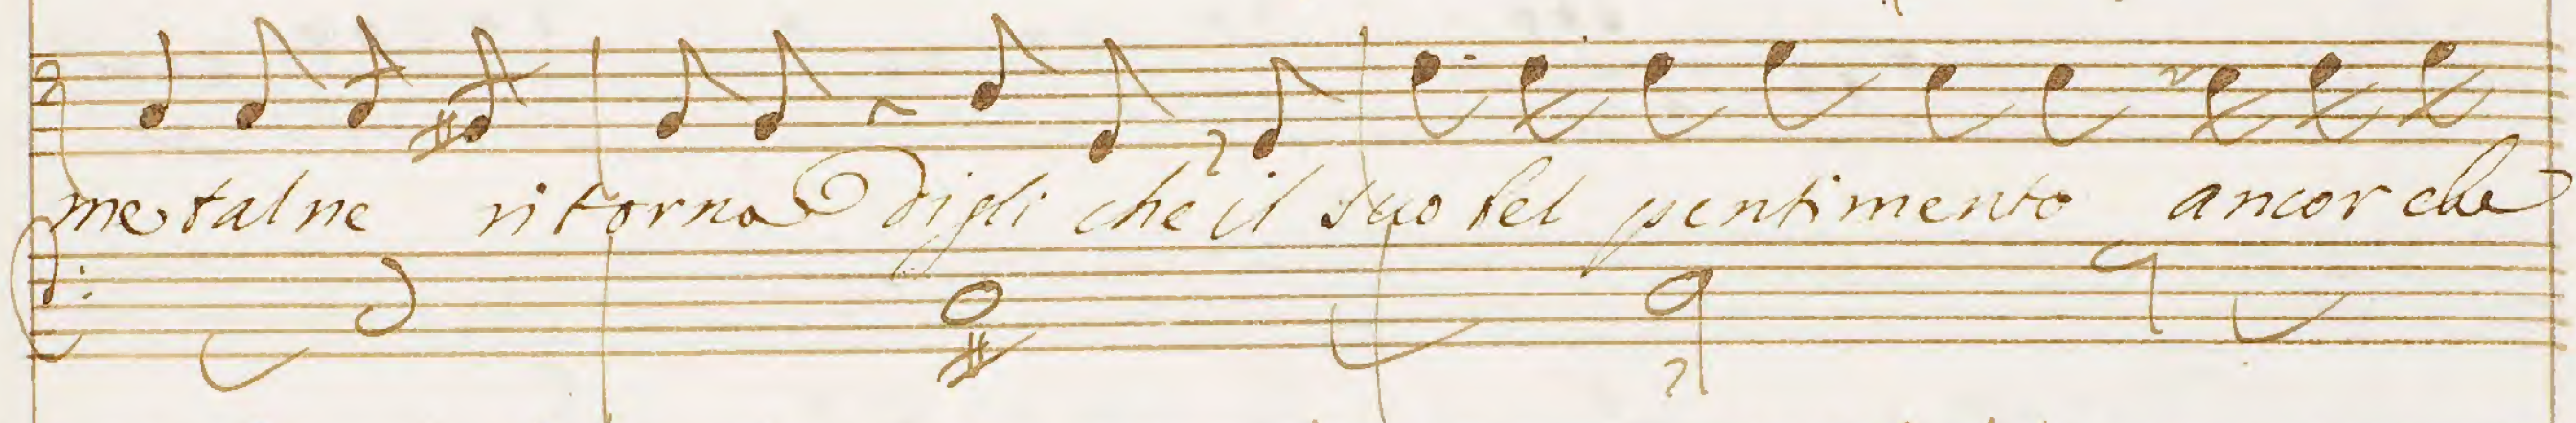 me tal ne ritorna digli che il suo bel pentimento ancor che